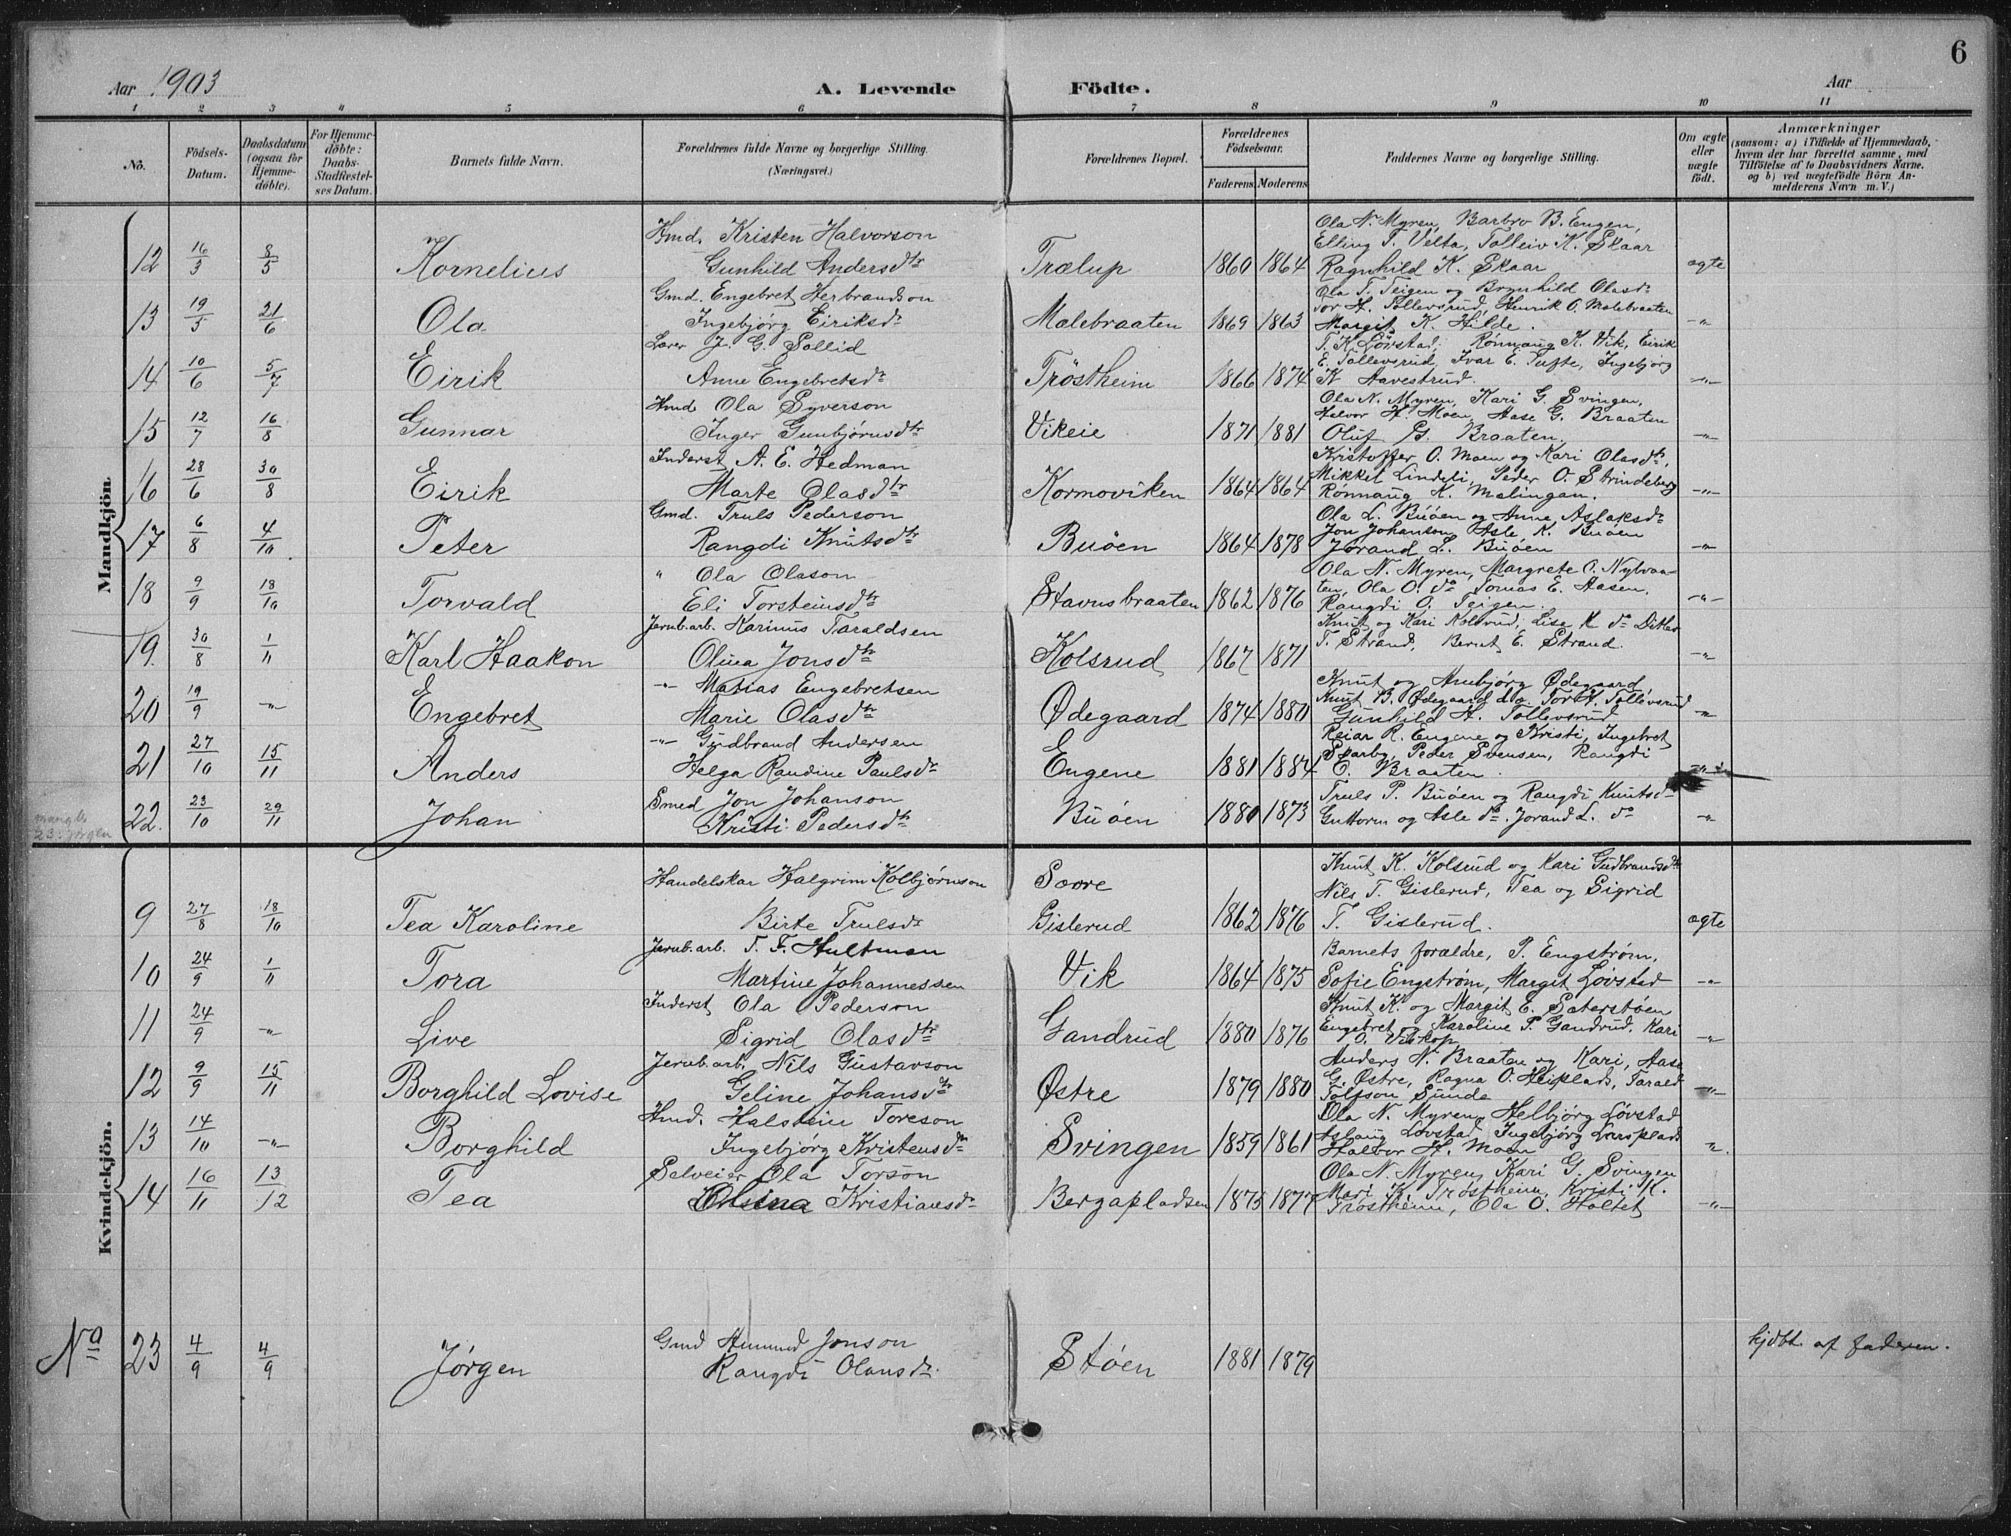 6
Aar 1903 A. Levende Födte. Aar
1 2 3 4 5 6 7 8 9 10 11
No. Födsels-Datum. Daabsdatum (ogsaa for Hjemmedöbte). For Hjemmedöbte: Daabs-Stadfæstelses Datum. Barnets fulde Navn. Forældrenes fulde Navne og borgerlige Stilling. (Næringsvei.) Forældrenes Bopæl. Forældrenes Födselsaar. Faderens Moderens Faddernes Navne og borgerlige Stilling. Om ægte eller uægte födt. Anmærkninger (saasom: a) i Tilfælde af Hjemmedaab, hvem der har forrettet samme, med Tilföielse af to Daabsvidners Navne, og b) ved uægtefödte Börn Anmelderens Navn m. V.)
Mandkjön.
Hmd. Kristen Halvorson Ola N. Myren, Barbro B. Engen,
Elling T. Velta, Tolleiv K. Skaar
12 16/3 8/5 Kornelius Gunhild Andersdtr Trælup 1860 1864 Ragnhild K. Skaar ægte
Gmd. Engebret Herbrandson Ola T. Teigen og Brynhild Olasdr
Tor H. Tollevsrud, Henrik O. Malebraaten
13 19/5 21/6 Ola Ingebjørg Eiriksdr Malebraaten 1869 1863 Margit K. Hilde. -"-
Lærer J. G. Sollid T. K. Løvstad, Rønnaug K. Vik, Eirik
E. Tollevsrud, Ivar E. Tufte, Ingebjørg
14 10/6 5/7 Eirik Anne Engebretsdr Tröstheim 1866 1874 K. Aavestrud. -"-
Hmd Ola Syverson Ola N. Myren, Kari G. Svingen,
Halvor H. Moen, Aase G. Braaten
15 12/7 16/8 Gunnar Inger Gunbjørnsdtr Vikeie 1871 1881 Oluf G. Braaten. -"-
Inderst A. E. Hedman Kristoffer O. Moen og Kari Olasdtr,
Mikkel Lindeli, Peder O. Strindeberg
16 28/6 30/8 Eirik Marte Olasdtr Kormoviken 1864 1864 Rønnaug K. Malingan. -"-
Gmd. Truls Pederson Ola L. Buöen og Anne Aslaksdr
Jon Johanson, Asle K. Buöen
17 6/8 4/10 Peter Rangdi Knutsdtr Buöen 1864 1878 Jorand L. Buöen -"-
" Ola Olason Ola N. Myren, Margrete O. Nybraa-
ten, Ola O. do Tomas E. Aasen,
18 9/9 18/10 Torvald Eli Torsteinsdtr Stavnsbraaten 1862 1876 Rangdi O. Teigen. -"-
Jernb.arb. Karinus Taraldsen Knut og Kari Kolsrud, Lise K. do Ditlev
T. Strand, Bernt E. Strand.
19. 30/8 1/11 Karl Haakon Olina Jonsdtr Kolsrud 1867 1871 -"-
-"- Matias Engebretsen Knut og Anbjørg Ødegaard
Knut B. Ødegaard d.o. Tor H. Tollevsrud
20 19/9 -"- Engebret Marie Olasdtr Ødegaard 1874 1880 Gunhild H. Tollevsrud -"-
-"- Gudbrand Andersen Reiar R. Engene og Kristi, Ingebret
Skarby, Peder Svensen, Rangdi
21 27/10 15/11 Anders Helga Randine Paulsdr Engene 1881 1884 O. Braaten. -"-
Smed Jon Johanson Truls P. Buöen og Rangdi Knutsdr
mangler 23. Jørgen 22. 23/10 29/11 Johan Kristi Pedersdtr Buöen 1880 1873 Guttorm og Asle do. Jorand L. do -"-
Kvindekjön.
Handelskar Halgrim Kolbjørnson Sævre Knut K. Kolsrud og Kari Gudbrandsdtr
Nils T. Gislerud, Tea og Sigrid
9 27/8 18/10 Tea Karoline Birte Trulsdr Gislerud 1862 1876 T. Gislerud. ægte
Jernb.arb. T. F. Hultman Barnets forældre, P. Engstrøm,
10 24/9 1/11 Tora Martine Johannessen Vik 1864 1875 Sofie Engstrøm, Margit Løvstad -"-
Inderst Ola Pederson Knut K. og Margit E. Sæterstøen
Engebret og Karoline P. Gandrud, Kari
11 24/9 -"- Live Sigrid Olasdtr Gandrud 1880 1876 O. Viskop -"-
Jernb.arb. Nils Gustavson Anders N. Braaten og Kari, Aase
G. Østre, Ragna O. Heiplads, Tarald
12 9/9 15/11 Borghild Lovise Geline Johansdtr Østre 1879 1880 Tolfson Sunde -"-
Hmd. Halstein Toreson Ola N. Myren, Helbjörg Løvstad
Aslaug Løvstad, Ingebjörg Larsplads
13 14/10 -"- Borghild Ingebjørg Kristensdtr Svingen 1859 1861 Halvor H. Moen -"-
Salveier Ola Torson Ola N. Myren, Kari G. Svingen
Mari K. Trøstheim, Kristi K.
14 16/11 13/12 Tea Olina Kristiansdr Bergapladsen 1875 1877 Trøstheim, Ola O. Holtet -"-
Gmd Amund Jonson
No 23 4/9 4/9 Jørgen Rangdi Olansdr. Støen 1881 1879 hjdbt. af faderen.